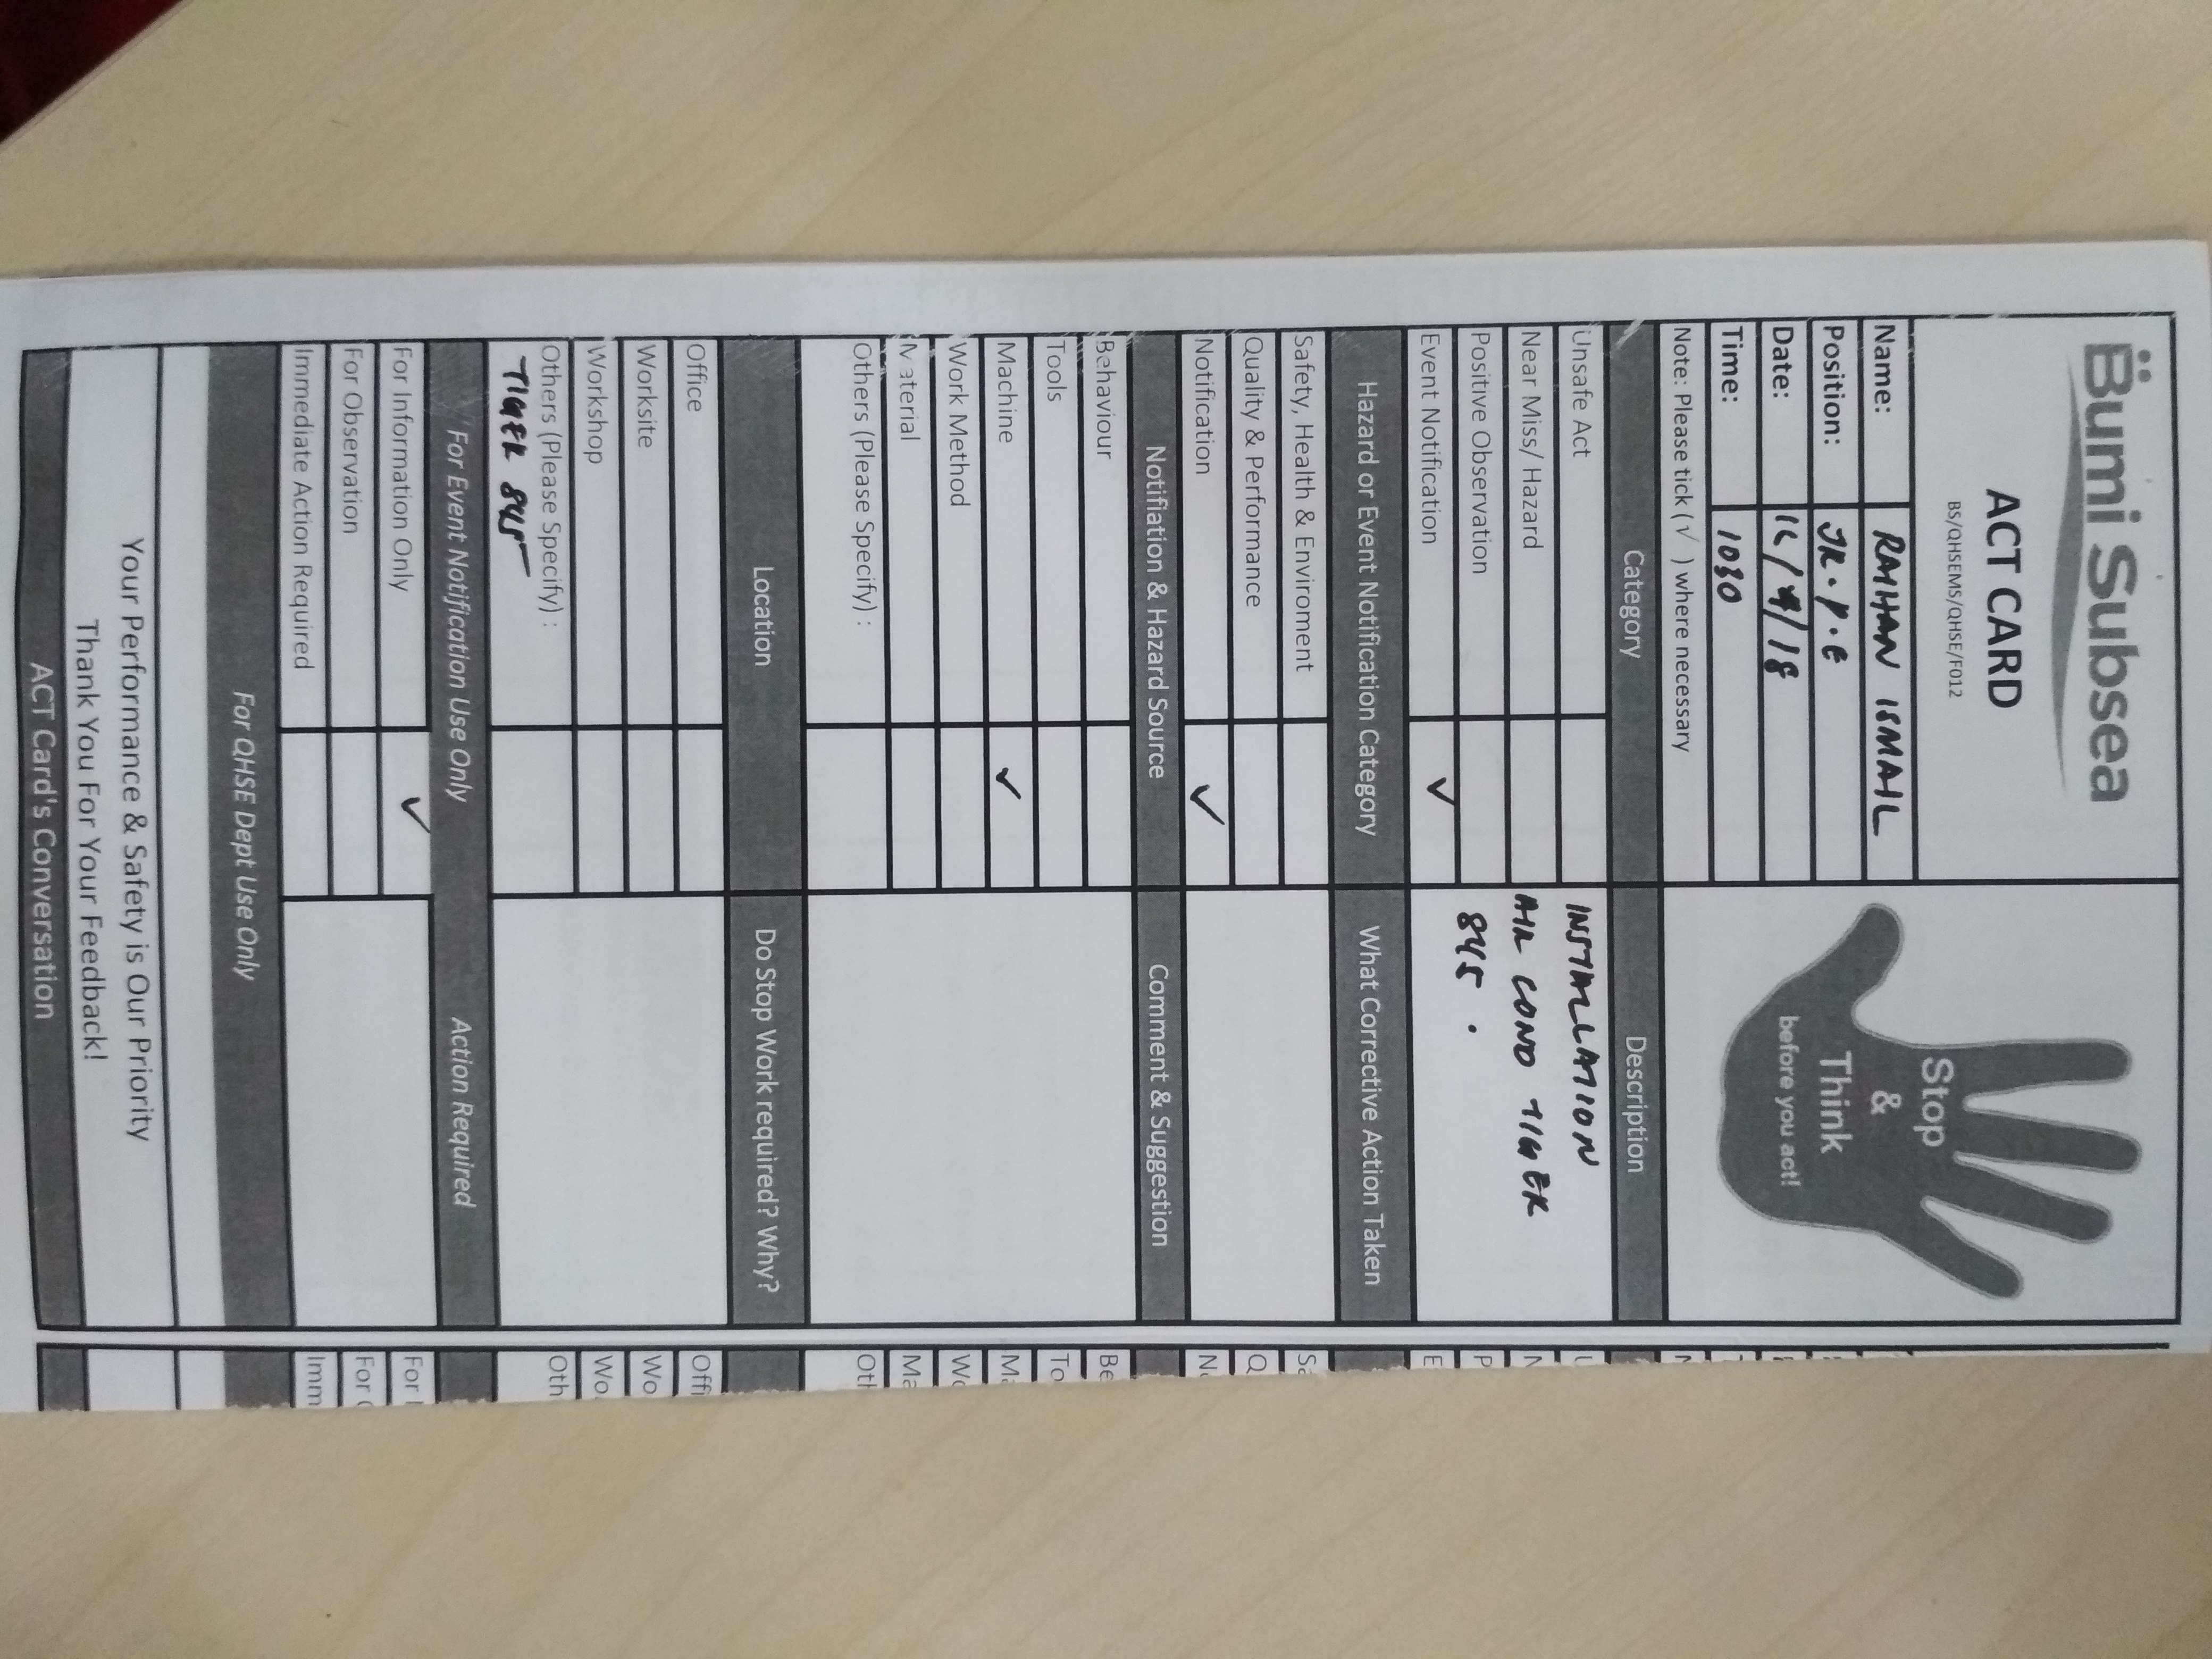 Bumi Subsea
ACT CARD
BS/QHSEMS/QHSE/F012
Stop
&
Think
before you act!
Name: RAIHAN ISMAIL
Position: JR.P.E
Date: /9/18
Time: 1030
Note: Please tick (√ ) where necessary
Category Description
Unsafe Act INSTALLATION
Near Miss/ Hazard AIR COND TIGER
Positive Observation 845.
Event Notification ✓
Hazard or Event Notification Category What Corrective Action Taken
Safety, Health & Enviroment
Quality & Performance
Notification ✓
Notifiation & Hazard Source Comment & Suggestion
Behaviour
Tools
Machine ✓
Work Method
Material
Others (Please Specify) :
Location Do Stop Work required? Why?
Office
Worksite
Workshop
Others (Please Specify) :
TIGER 845
For Event Notification Use Only Action Required
For Information Only ✓
For Observation
Immediate Action Required
For QHSE Dept Use Only
Your Performance & Safety is Our Priority
Thank You For Your Feedback!
ACT Card's Conversation